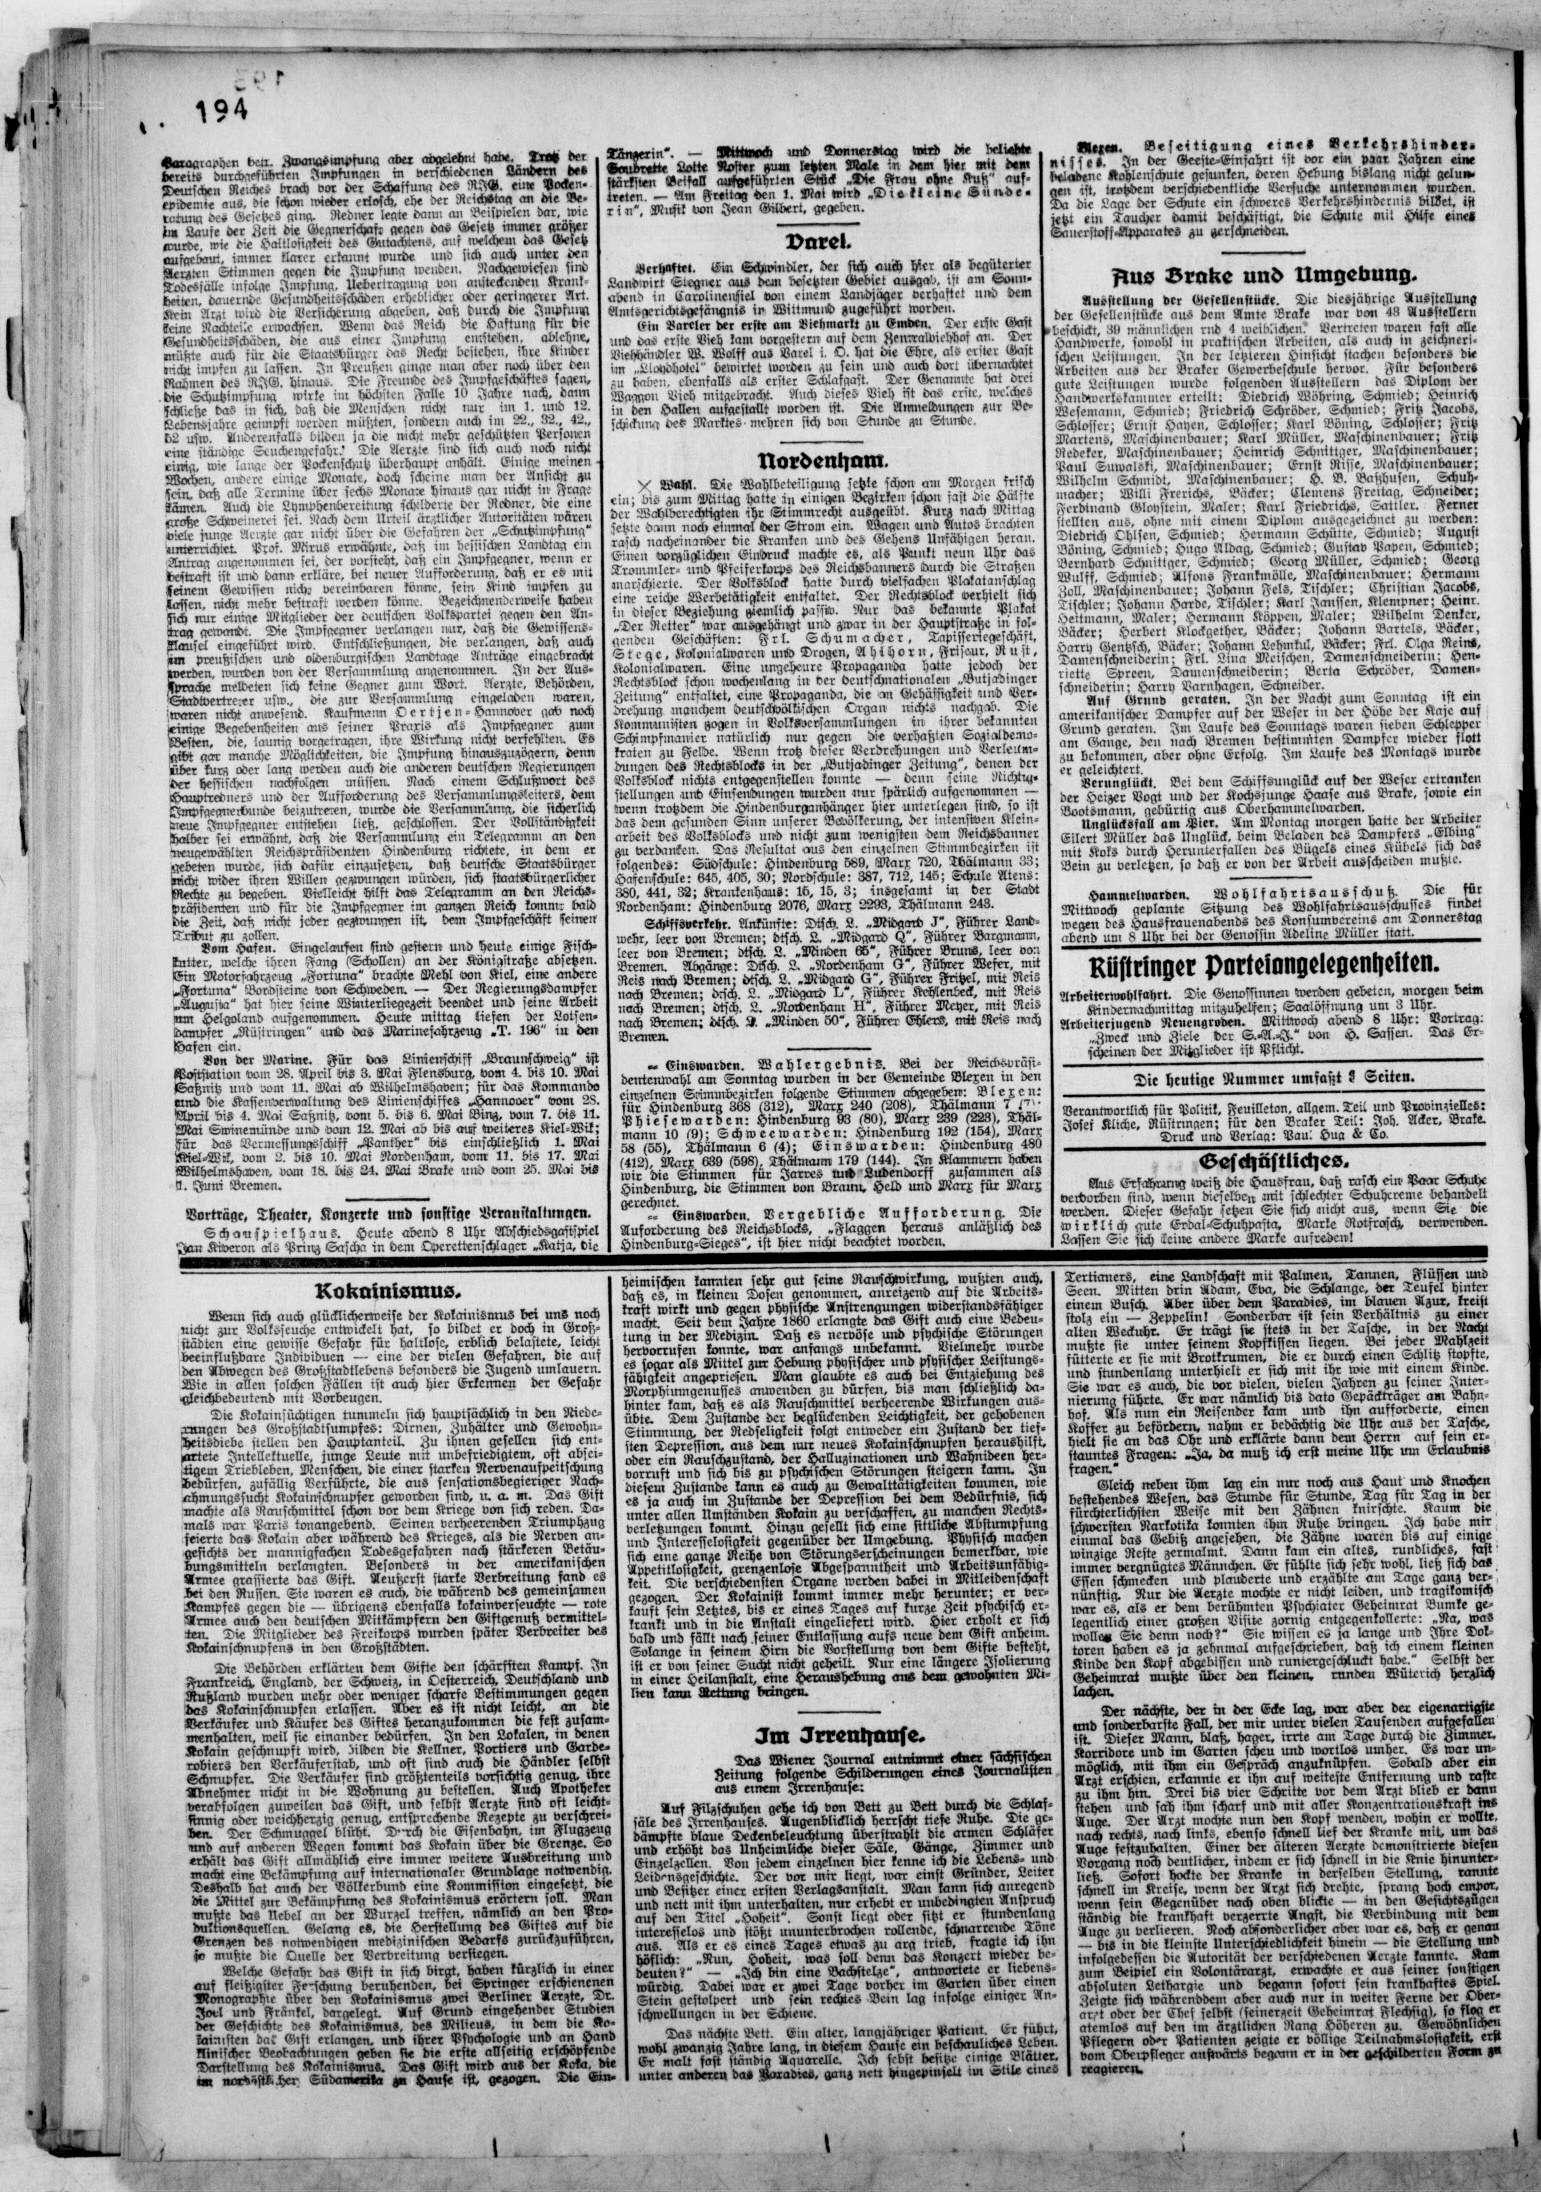 194
Paragraphen betr. Zwangsimpfung aber abgelehnt habe. Trotz der
bereits durchgeführten Impfungen in verschiedenen Ländern des
Deutschen Reiches brach vor der Schaffung des RJG. eine Pocken-
epidemie aus, die schon wieder erlosch, ehe der Reichstag an die Be-
ratung des Gesetzes ging. Redner legte dann an Beispielen dar, wie
im Laufe der Zeit die Gegnerschaft gegen das Gesetz immer größer
wurde, wie die Haltlosigkeit des Gutachtens, auf welchem das Gesetz
aufgebaut, immer klarer erkannt wurde und sich auch unter den
Aerzten Stimmen gegen die Impfung wenden. Nachgewiesen sind
Todesfälle infolge Impfung, Uebertragung von ansteckenden Krank-
heiten, dauernde Gesundheitsschäden erheblicher oder geringerer Art.
Kein Arzt wird die Versicherung abgeben, daß durch die Impfung
keine Nachteile erwachsen. Wenn das Reich die Haftung für die
Gesundheitsschäden, die aus einer Impfung entstehen, ablehne,
müßte auch für die Staatsbürger das Recht bestehen, ihre Kinder
nicht impfen zu lassen. In Preußen ginge man aber noch über den
Rahmen des RJG. hinaus. Die Freunde des Impfgeschäftes sagen,
die Schutzimpfung wirke im höchsten Falle 10 Jahre nach, dann
schließe das in sich, daß die Menschen nicht nur im 1. und 12.
Lebensjahre geimpft werden müßten, sondern auch im 22., 32., 42.,
52 usw. Anderenfalls bilden ja die nicht mehr geschützten Personen
eine ständige Seuchengefahr. Die Aerzte sind sich auch noch nicht
einig, wie lange der Pockenschutz überhaupt anhält. Einige meinen
Wochen, andere einige Monate, doch scheine man der Ansicht zu
sein, daß alle Termine über sechs Monate hinaus gar nicht in Frage
kämen. Auch die Lymphenbereitung schilderte der Redner, die eine
große Schweinerei sei. Nach dem Urteil ärztlicher Autoritäten wären
viele junge Aerzte gar nicht über die Gefahren der „Schutzimpfung"
unterrichtet. Prof. Mirus erwähnte, daß im hessischen Landtag ein
Antrag angenommen sei, der vorsieht, daß ein Impfgegner, wenn er
bestraft ist und dann erkläre, bei neuer Aufforderung, daß er es mit
seinem Gewissen nicht vereinbaren könne, sein Kind impfen zu
lassen, nicht mehr bestraft werden könne. Bezeichnenderweise haben
sich nur einige Mitglieder der deutschen Volkspartei gegen den An-
trag gewandt. Die Impfgegner verlangen nur, daß die Gewissens-
klausel eingeführt wird. Entschließungen, die verlangen, daß auch
im preußischen und oldenburgischen Landtage Anträge eingebracht
werden, wurden von der Versammlung angenommen. In der Aus-
sprache meldeten sich keine Gegner zum Wort. Aerzte, Behörden,
Stadtvertreter usw., die zur Versammlung eingeladen waren,
waren nicht anwesend. Kaufmann Oertjen-Hannover gab noch
einige Begebenheiten aus seiner Praxis als Impfgegner zum
Besten, die, launig vorgetragen, ihre Wirkung nicht verfehlten. Es
gibt gar manche Möglichkeiten, die Impfung hinauszuzögern, denn
über kurz oder lang werden auch die anderen deutschen Regierungen
der hessischen nachfolgen müssen. Nach einem Schlußwort des
Hauptredners und der Aufforderung des Versammlungsleiters, dem
Impfgegnerbunde beizutreten, wurde die Versammlung, die sicherlich
neue Impfgegner entstehen ließ, geschlossen. Der Vollständigkeit
halber sei erwähnt, daß die Versammlung ein Telegramm an den
neugewählten Reichspräsidenten Hindenburg richtete, in dem er
gebeten wurde, sich dafür einzusetzen, daß deutsche Staatsbürger
nicht wider ihren Willen gezwungen würden, sich staatsbürgerlicher
Rechte zu begeben. Vielleicht hilft das Telegramm an den Reichs-
präsidenten und für die Impfgegner im ganzen Reich kommt bald
die Zeit, daß nicht jeder gezwungen ist, dem Impfgeschäft seinen
Tribut zu zollen.
Vom Hafen. Eingelaufen sind gestern und heute einige Fisch-
kutter, welche ihren Fang (Schollen) an der Königstraße absetzen.
Ein Motorfahrzeug „Fortuna" brachte Mehl von Kiel, eine andere
„Fortuna" Bordsteine von Schweden. — Der Regierungsdampfer
„Augusta" hat hier seine Winterliegezeit beendet und seine Arbeit
um Helgoland aufgenommen. Heute mittag liefen der Lotsen-
dampfer „Rüstringen" und das Marinefahrzeug „T. 196" in den
Hafen ein.
Von der Marine. Für das Linienschiff „Braunschweig" ist
Poststation vom 28. April bis 3. Mai Flensburg, vom 4. bis 10. Mai
Saßnitz und vom 11. Mai ab Wilhelmshaven; für das Kommando
und die Kassenverwaltung des Linienschiffes „Hannover" vom 28.
April bis 4. Mai Saßnitz, vom 5. bis 6. Mai Binz, vom 7. bis 11.
Mai Swinemünde und vom 12. Mai ab bis auf weiteres Kiel-Wik;
für das Vermessungsschiff „Panther" bis einschließlich 1. Mai
Kiel-Wik, vom 2. bis 10. Mai Nordenham, vom 11. bis 17. Mai
Wilhelmshaven, vom 18. bis 24. Mai Brake und vom 25. Mai bis
1. Juni Bremen.
Vorträge, Theater, Konzerte und sonstige Veranstaltungen.
Schauspielhaus. Heute abend 8 Uhr Abschiedsgastspiel
Jan Kiveron als Prinz Sascha in dem Operettenschlager „Katja, die
Tänzerin". — Mittwoch und Donnerstag wird die beliebte
Soubrette Lotte Roster zum letzten Male in dem hier mit dem
stärksten Beifall aufgeführten Stück „Die Frau ohne Kuß" auf-
treten. — Am Freitag den 1. Mai wird „Die kleine Sünde-
rin", Musik von Jean Gilbert, gegeben.
Varel.
Verhaftet. Ein Schwindler, der sich auch hier als begüterter
Landwirt Stegner aus dem besetzten Gebiet ausgab, ist am Sonn-
abend in Carolinensiel von einem Landjäger verhaftet und dem
Amtsgerichtsgefängnis in Wittmund zugeführt worden.
Ein Vareler der erste am Viehmarkt zu Emden. Der erste Gast
und das erste Vieh kam vorgestern auf dem Zentralviehhof an. Der
Viehhändler W. Wolff aus Varel i. O. hat die Ehre, als erster Gast
im „Lloydhotel" bewirtet worden zu sein und auch dort übernachtet
zu haben, ebenfalls als erster Schlafgast. Der Genannte hat drei
Waggon Vieh mitgebracht. Auch dieses Vieh ist das erste, welches
in den Hallen aufgestallt worden ist. Die Anmeldungen zur Be-
schickung des Marktes mehren sich von Stunde zu Stunde.
Nordenham.
× Wahl. Die Wahlbeteiligung setzte schon am Morgen frisch
ein; bis zum Mittag hatte in einigen Bezirken schon fast die Hälfte
der Wahlberechtigten ihr Stimmrecht ausgeübt. Kurz nach Mittag
setzte dann noch einmal der Strom ein. Wagen und Autos brachten
rasch nacheinander die Kranken und des Gehens Unfähigen heran.
Einen vorzüglichen Eindruck machte es, als Punkt neun Uhr das
Trommler- und Pfeiferkorps des Reichsbanners durch die Straßen
marschierte. Der Volksblock hatte durch vielfachen Plakatanschlag
eine reiche Werbetätigkeit entfaltet. Der Rechtsblock verhielt sich
in dieser Beziehung ziemlich passiv. Nur das bekannte Plakat
„Der Retter" war ausgehängt und zwar in der Hauptstraße in fol-
genden Geschäften: Frl. Schumacher, Tapisseriegeschäft,
Stege, Kolonialwaren und Drogen, Ahlhorn, Friseur, Rust,
Kolonialwaren. Eine ungeheure Propaganda hatte jedoch der
Rechtsblock schon wochenlang in der deutschnationalen „Butjadinger
Zeitung" entfaltet, eine Propaganda, die an Gehässigkeit und Ver-
drehung manchem deutschvölkischen Organ nichts nachgab. Die
Kommunisten zogen in Volksversammlungen in ihrer bekannten
Schimpfmanier natürlich nur gegen die verhaßten Sozialdemo-
kraten zu Felde. Wenn trotz dieser Verdrehungen und Verleum-
dungen des Rechtsblocks in der „Butjadinger Zeitung", denen der
Volksblock nichts entgegenstellen konnte — denn seine Richtig-
stellungen und Einsendungen wurden nur spärlich aufgenommen —
wenn trotzdem die Hindenburganhänger hier unterlegen sind, so ist
das dem gesunden Sinn unserer Bevölkerung, der intensiven Klein-
arbeit des Volksblocks und nicht zum wenigsten dem Reichsbanner
zu verdanken. Das Resultat aus den einzelnen Stimmbezirken ist
folgendes: Südschule: Hindenburg 589, Marx 720, Thälmann 33;
Hafenschule: 645, 405, 30; Nordschule: 387, 712, 145; Schule Atens:
380, 441, 32; Krankenhaus: 15, 15, 3; insgesamt in der Stadt
Nordenham: Hindenburg 2076, Marx 2293, Thälmann 243.
Schiffsverkehr. Ankünfte: Dtsch. L. „Midgard J", Führer Land-
wehr, leer von Bremen; dtsch. L. „Midgard Q", Führer Bargmann,
leer von Bremen; dtsch. L. „Minden 65", Führer Bruns, leer von
Bremen. Abgänge: Dtsch. L. „Nordenham G", Führer Weser, mit
Reis nach Bremen; dtsch. L. „Midgard G", Führer Fritzel, mit Reis
nach Bremen; dtsch. L. „Midgard L", Führer Kehlenbeck, mit Reis
nach Bremen; dtsch. L. „Nordenham H", Führer Meyer, mit Reis
nach Bremen; dtsch. L. „Minden 50", Führer Ehlers, mit Reis nach
Bremen.
Einswarden. Wahlergebnis. Bei der Reichspräsi-
dentenwahl am Sonntag wurden in der Gemeinde Blexen in den
einzelnen Stimmbezirken folgende Stimmen abgegeben: Blexen:
für Hindenburg 368 (312), Marx 240 (208), Thälmann 7
Phiesewarden: Hindenburg 93 (80), Marx 239 (223), Thäl-
mann 10 (9); Schweewarden: Hindenburg 192 (154), Marx
58 (55), Thälmann 6 (4); Einswarden: Hindenburg 480
(412), Marx 639 (598), Thälmann 179 (144). In Klammern haben
wir die Stimmen für Jarres und Ludendorff zusammen als
Hindenburg, die Stimmen von Braun, Held und Marx für Marx
gerechnet.
Einswarden. Vergebliche Aufforderung. Die
Aufforderung des Reichsblocks, „Flaggen heraus anläßlich des
Hindenburg-Sieges", ist hier nicht beachtet worden.
Blexen. Beseitigung eines Verkehrshinder-
nisses. In der Geeste-Einfahrt ist vor ein paar Jahren eine
beladene Kohlenschute gesunken, deren Hebung bislang nicht gelun-
gen ist, trotzdem verschiedentliche Versuche unternommen wurden.
Da die Lage der Schute ein schweres Verkehrshindernis bildet, ist
jetzt ein Taucher damit beschäftigt, die Schute mit Hilfe eines
Sauerstoff-Apparates zu zerschneiden.
Aus Brake und Umgebung.
Ausstellung der Gesellenstücke. Die diesjährige Ausstellung
der Gesellenstücke aus dem Amte Brake war von 43 Ausstellern
beschickt, 39 männlichen rnd 4 weiblichen. Vertreten waren fast alle
Handwerke, sowohl in praktischen Arbeiten, als auch in zeichneri-
schen Leistungen. In der letzteren Hinsicht stachen besonders die
Arbeiten aus der Braker Gewerbeschule hervor. Für besonders
gute Leistungen wurde folgenden Ausstellern das Diplom der
Handwerkskammer erteilt: Diedrich Wöhring, Schmied; Heinrich
Wesemann, Schmied; Friedrich Schröder, Schmied; Fritz Jacobs,
Schlosser; Ernst Hayen, Schlosser; Karl Böning, Schlosser; Fritz
Martens, Maschinenbauer; Karl Müller, Maschinenbauer; Fritz
Redeker, Maschinenbauer; Heinrich Schnittger, Maschinenbauer;
Paul Suwalski, Maschinenbauer; Ernst Risse, Maschinenbauer;
Wilhelm Schmidt, Maschinenbauer; H. B. Baßhusen, Schuh-
macher; Willi Frerichs, Bäcker; Clemens Freitag, Schneider;
Ferdinand Gloystein, Maler; Karl Friedrichs, Sattler. Ferner
stellten aus, ohne mit einem Diplom ausgezeichnet zu werden:
Diedrich Ohlsen, Schmied; Hermann Schütte, Schmied; August
Böning, Schmied; Hugo Aldag, Schmied; Gustav Papen, Schmied;
Bernhard Schnittger, Schmied; Georg Müller, Schmied; Georg
Wulff, Schmied; Alfons Frankmölle, Maschinenbauer; Hermann
Zoll, Maschinenbauer; Johann Fels, Tischler; Christian Jacobs,
Tischler; Johann Harde, Tischler; Karl Janssen, Klempner; Heinr.
Hettmann, Maler; Hermann Köppen, Maler; Wilhelm Denker,
Bäcker; Herbert Klockgether, Bäcker; Johann Bartels, Bäcker,
Harry Gentzsch, Bäcker; Johann Lehmkul, Bäcker; Frl. Olga Reins,
Damenschneiderin; Frl. Lina Meischen, Damenschneiderin; Hen-
riette Spreen, Damenschneiderin; Berta Schröder, Damen-
schneiderin; Harry Varnhagen, Schneider.
Auf Grund geraten. In der Nacht zum Sonntag ist ein
amerikanischer Dampfer auf der Weser in der Höhe der Kaje auf
Grund geraten. Im Laufe des Sonntags waren sieben Schlepper
am Gange, den nach Bremen bestimmten Dampfer wieder flott
zu bekommen, aber ohne Erfolg. Im Laufe des Montags wurde
er geleichtert.
Verunglückt. Bei dem Schiffsunglück auf der Weser ertranken
der Heizer Vogt und der Kochsjunge Haase aus Brake, sowie ein
Bootsmann, gebürtig aus Oberhammelwarden.
Unglücksfall am Pier. Am Montag morgen hatte der Arbeiter
Eilert Müller das Unglück, beim Beladen des Dampfers „Elbing"
mit Koks durch Herunterfallen des Bügels eines Kübels sich das
Bein zu verletzen, so daß er von der Arbeit ausscheiden mußte.
Hammelwarden. Wohlfahrtsausschuß. Die für
Mittwoch geplante Sitzung des Wohlfahrtsausschusses findet
wegen des Hausfrauenabends des Konsumvereins am Donnerstag
abend um 8 Uhr bei der Genossin Adeline Müller statt.
Rüstringer Parteiangelegenheiten.
Arbeiterwohlfahrt. Die Genossinnen werden gebeten, morgen beim
Kindernachmittag mitzuhelfen; Saalöffnung um 3 Uhr.
Arbeiterjugend Neuengroden. Mittwoch abend 8 Uhr: Vortrag:
„Zweck und Ziele der S.-A.-J." von H. Sassen. Das Er-
scheinen der Mitglieder ist Pflicht.
Die heutige Nummer umfaßt 8 Seiten.
Verantwortlich für Politik, Feuilleton, allgem. Teil und Provinzielles:
Josef Kliche, Rüstringen; für den Braker Teil: Joh. Acker, Brake.
Druck und Verlag: Paul Hug & Co.
Geschäftliches.
Aus Erfahrung weiß die Hausfrau, daß rasch ein Paar Schuhe
verdorben sind, wenn dieselben mit schlechter Schuhcreme behandelt
werden. Dieser Gefahr setzen Sie sich nicht aus, wenn Sie die
wirklich gute Erdal-Schuhpasta, Marke Rotfrosch, verwenden.
Lassen Sie sich keine andere Marke aufreden!
Kokainismus.
Wenn sich auch glücklicherweise der Kokainismus bei uns noch
nicht zur Volksseuche entwickelt hat, so bildet er doch in Groß-
städten eine gewisse Gefahr für haltlose, erblich belastete, leicht
beeinflußbare Individuen — eine der vielen Gefahren, die auf
den Abwegen des Großstadtlebens besonders die Jugend umlauern.
Wie in allen solchen Fällen ist auch hier Erkennen der Gefahr
gleichbedeutend mit Vorbeugen.
Die Kokainsüchtigen tummeln sich hauptsächlich in den Niede-
rungen des Großstadtsumpfes: Dirnen, Zuhälter und Gewohn-
heitsdiebe stellen den Hauptanteil. Zu ihnen gesellen sich ent-
artete Intellektuelle, junge Leute mit unbefriedigtem, oft absei-
tigem Triebleben, Menschen, die einer starken Nervenaufpeitschung
bedürfen, zufällig Verführte, die aus sensationsbegieriger Nach-
ahmungssucht Kokainschnupfer geworden sind, u. a. m. Das Gift
machte als Rauschmittel schon vor dem Kriege von sich reden. Da-
mals war Paris tonangebend. Seinen verheerenden Triumphzug
feierte das Kokain aber während des Krieges, als die Nerven an-
gesichts der mannigfachen Todesgefahren nach stärkeren Betäu-
bungsmitteln verlangten. Besonders in der amerikanischen
Armee grassierte das Gift. Aeußerst starke Verbreitung fand es
bei den Russen. Sie waren es auch, die während des gemeinsamen
Kampfes gegen die — übrigens ebenfalls kokainverseuchte — rote
Armee auch den deutschen Mitkämpfern den Giftgenuß vermittel-
ten. Die Mitglieder des Freikorps wurden später Verbreiter des
Kokainschnupfens in den Großstädten.
Die Behörden erklärten dem Gifte den schärfsten Kampf. In
Frankreich, England, der Schweiz, in Oesterreich, Deutschland und
Rußland wurden mehr oder weniger scharfe Bestimmungen gegen
das Kokainschnupfen erlassen. Aber es ist nicht leicht, an die
Verkäufer und Käufer des Giftes heranzukommen die fest zusam-
menhalten, weil sie einander bedürfen. In den Lokalen, in denen
Kokain geschnupft wird, bilden die Kellner, Portiers und Garde-
robiers den Verkäuferstab, und oft sind auch die Händler selbst
Schnupfer. Die Verkäufer sind größtenteils vorsichtig genug, ihre
Abnehmer nicht in die Wohnung zu bestellen. Auch Apotheker
verabfolgen zuweilen das Gift, und selbst Aerzte sind oft leicht-
sinnig oder weichherzig genug, entsprechende Rezepte zu verschrei-
ben. Der Schmuggel blüht. Durch die Eisenbahn, im Flugzeug
und auf anderen Wegen kommt das Kokain über die Grenze. So
erhält das Gift allmählich eine immer weitere Ausbreitung und
macht eine Bekämpfung auf internationaler Grundlage notwendig.
Deshalb hat auch der Völkerbund eine Kommission eingesetzt, die
die Mittel zur Bekämpfung des Kokainismus erörtern soll. Man
mußte das Uebel an der Wurzel treffen, nämlich an den Pro-
duktionsquellen. Gelang es, die Herstellung des Giftes auf die
Grenzen des notwendigen medizinischen Bedarfs zurückzuführen,
so mußte die Quelle der Verbreitung versiegen.
Welche Gefahr das Gift in sich birgt, haben kürzlich in einer
auf fleißigster Forschung beruhenden, bei Springer erschienenen
Monographie über den Kokainismus zwei Berliner Aerzte, Dr.
Joel und Fränkel, dargelegt. Auf Grund eingehender Studien
der Geschichte des Kokainismus, des Milieus, in dem die Ko-
kainisten das Gift erlangen, und ihrer Psychologie und an Hand
klinischer Beobachtungen geben sie die erste allseitig erschöpfende
Darstellung des Kokainismus. Das Gift wird aus der Koka, die
im nordöstlichen Südamerika zu Hause ist, gezogen. Die Ein-
heimischen kannten sehr gut seine Rauschwirkung, wußten auch,
daß es, in kleinen Dosen genommen, anreizend auf die Arbeits-
kraft wirkt und gegen physische Anstrengungen widerstandsfähiger
macht. Seit dem Jahre 1860 erlangte das Gift auch eine Bedeu-
tung in der Medizin. Daß es nervöse und psychische Störungen
hervorrufen konnte, war anfangs unbekannt. Vielmehr wurde
es sogar als Mittel zur Hebung physischer und psychischer Leistungs-
fähigkeit angepriesen. Man glaubte es auch bei Entziehung des
Morphiumgenusses anwenden zu dürfen, bis man schließlich da-
hinter kam, daß es als Rauschmittel verheerende Wirkungen aus-
übte. Dem Zustande der beglückenden Leichtigkeit, der gehobenen
Stimmung, der Redseligkeit folgt entweder ein Zustand der tief-
sten Depression, aus dem nur neues Kokainschnupfen heraushilft,
oder ein Rauschzustand, der Halluzinationen und Wahnideen her-
vorruft und sich bis zu psychischen Störungen steigern kann. In
diesem Zustande kann es auch zu Gewalttätigkeiten kommen, wie
es ja auch im Zustande der Depression bei dem Bedürfnis, sich
unter allen Umständen Kokain zu verschaffen, zu manchen Rechts-
verletzungen kommt. Hinzu gesellt sich eine sittliche Abstumpfung
und Interesselosigkeit gegenüber der Umgebung. Physisch machen
sich eine ganze Reihe von Störungserscheinungen bemerkbar, wie
Appetitlosigkeit, grenzenlose Abgespanntheit und Arbeitsunfähig-
keit. Die verschiedensten Organe werden dabei in Mitleidenschaft
gezogen. Der Kokainist kommt immer mehr herunter; er ver-
kauft sein Letztes, bis er eines Tages auf kurze Zeit psychisch er-
krankt und in die Anstalt eingeliefert wird. Hier erholt er sich
bald und fällt nach seiner Entlassung aufs neue dem Gift anheim.
Solange in seinem Hirn die Vorstellung von dem Gifte besteht,
ist er von seiner Sucht nicht geheilt. Nur eine längere Isolierung
in einer Heilanstalt, eine Heraushebung aus dem gewohnten Mi-
lieu kann Rettung bringen.
Im Irrenhause.
Das Wiener Journal entnimmt einer sächsischen
Zeitung folgende Schilderungen eines Journalisten
aus einem Irrenhause:
Auf Filzschuhen gehe ich von Bett zu Bett durch die Schlaf-
säle des Irrenhauses. Augenblicklich herrscht tiefe Ruhe. Die ge-
dämpfte blaue Deckenbeleuchtung überstrahlt die armen Schläfer
und erhöht das Unheimliche dieser Säle, Gänge, Zimmer und
Einzelzellen. Von jedem einzelnen hier kenne ich die Lebens- und
Leidensgeschichte. Der vor mir liegt, war einst Gründer, Leiter
und Besitzer einer ersten Verlagsanstalt. Man kann sich anregend
und nett mit ihm unterhalten, nur erhebt er unbedingten Anspruch
auf den Titel „Hoheit". Sonst liegt oder sitzt er stundenlang
interesselos und stößt ununterbrochen rollende, schnarrende Töne
aus. Als er es eines Tages etwas zu arg trieb, fragte ich ihn
höflich: „Nun, Hoheit, was soll denn das Konzert wieder be-
deuten?" — „Ich bin eine Bachstelze", antwortete er liebens-
würdig. Dabei war er zwei Tage vorher im Garten über einen
Stein gestolpert und sein rechtes Bein lag infolge einiger An-
schwellungen in der Schiene.
Das nächste Bett. Ein alter, langjähriger Patient. Er führt,
wohl zwanzig Jahre lang, in diesem Hause ein beschauliches Leben.
Er malt fast ständig Aquarelle. Ich selbst besitze einige Blätter,
unter anderen das Paradies, ganz nett hingepinselt im Stile eines
Tertianers, eine Landschaft mit Palmen, Tannen, Flüssen und
Seen. Mitten drin Adam, Eva, die Schlange, der Teufel hinter
einem Busch. Aber über dem Paradies, im blauen Azur, kreist
stolz ein — Zeppelin! Sonderbar ist sein Verhältnis zu einer
alten Weckuhr. Er trägt sie stets in der Tasche, in der Nacht
mußte sie unter seinem Kopfkissen liegen. Bei jeder Mahlzeit
fütterte er sie mit Brotkrumen, die er durch einen Schlitz stopfte,
und stundenlang unterhielt er sich mit ihr wie mit einem Kinde.
Sie war es auch, die vor vielen, vielen Jahren zu seiner Inter-
nierung führte. Er war nämlich bis dato Gepäckträger am Bahn-
hof. Als nun ein Reisender kam und ihn aufforderte, einen
Koffer zu befördern, nahm er bedächtig die Uhr aus der Tasche,
hielt sie an das Ohr und erklärte dann dem Herrn auf sein er-
stauntes Fragen: „Ja, da muß ich erst meine Uhr um Erlaubnis
fragen."
Gleich neben ihm lag ein nur noch aus Haut und Knochen
bestehendes Wesen, das Stunde für Stunde, Tag für Tag in der
fürchterlichsten Weise mit den Zähnen knirschte. Kaum die
schwersten Narkotika konnten ihm Ruhe bringen. Ich habe mir
einmal das Gebiß angesehen, die Zähne waren bis auf einige
winzige Reste zermalmt. Dann kam ein altes, rundliches, fast
immer vergnügtes Männchen. Er fühlte sich sehr wohl, ließ sich das
Essen schmecken und plauderte und erzählte am Tage ganz ver-
nünftig. Nur die Aerzte mochte er nicht leiden, und tragikomisch
war es, als er dem berühmten Psychiater Geheimrat Bumke ge-
legentlich einer großen Visite zornig entgegenkollerte: „Na, was
wollen Sie denn noch?" Sie wissen es ja lange und Ihre Dok-
toren haben es ja zehnmal aufgeschrieben, daß ich einem kleinen
Kinde den Kopf abgebissen und runtergeschluckt habe." Selbst der
Geheimrat mußte über den kleinen, runden Wüterich herzlich
lachen.
Der nächste, der in der Ecke lag, war aber der eigenartigste
und sonderbarste Fall, der mir unter vielen Tausenden aufgefallen
ist. Dieser Mann, blaß, hager, irrte am Tage durch die Zimmer,
Korridore und im Garten scheu und wortlos umher. Es war un-
möglich, mit ihm ein Gespräch anzuknüpfen. Sobald aber ein
Arzt erschien, erkannte er ihn auf weiteste Entfernung und raste
zu ihm hin. Drei bis vier Schritte vor dem Arzt blieb er dann
stehen und sah ihm scharf und mit aller Konzentrationskraft ins
Auge. Der Arzt mochte nun den Kopf wenden, wohin er wollte,
nach rechts, nach links, ebenso schnell lief der Kranke mit, um das
Auge festzuhalten. Einer der älteren Aerzte demonstrierte diesen
Vorgang noch deutlicher, indem er sich schnell in die Knie hinunter-
ließ. Sofort hockte der Kranke in derselben Stellung, rannte
schnell im Kreise, wenn der Arzt sich drehte, sprang hoch empor,
wenn sein Gegenüber nach oben blickte — in den Gesichtszügen
ständig die krankhaft verzerrte Angst, die Verbindung mit dem
Auge zu verlieren. Noch absonderlicher aber war es, daß er genau
— bis in die kleinste Unterschiedlichkeit hinein — die Stellung und
infolgedessen die Autorität der verschiedenen Aerzte kannte. Kam
zum Beipiel ein Volontärarzt, erwachte er aus seiner sonstigen
absoluten Lethargie und begann sofort sein krankhaftes Spiel.
Zeigte sich währenddem aber auch nur in weiter Ferne der Ober-
arzt oder der Chef selbst (seinerzeit Geheimrat Flechsig), so flog er
atemlos auf den im ärztlichen Rang Höheren zu. Gewöhnlichen
Pflegern oder Patienten zeigte er völlige Teilnahmslosigkeit, erst
vom Oberpfleger aufwärts begann er in der geschilderten Form zu
reagieren.